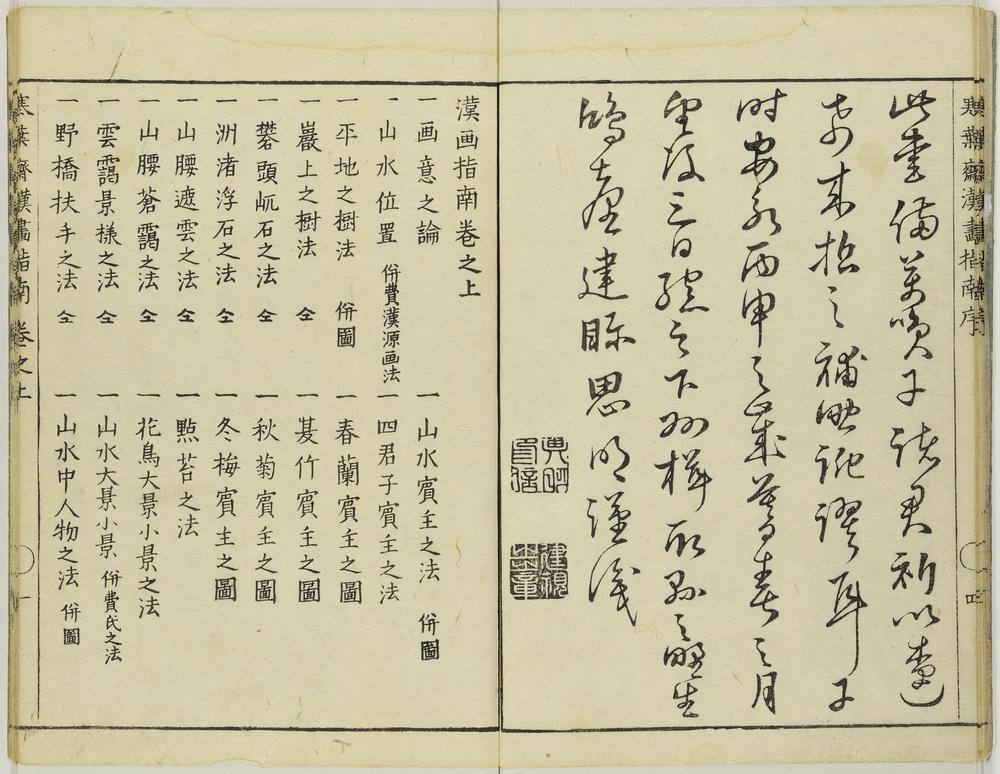 寒葉齋漢畫指南序 四
此書備 子諸君祈以
来 之補 訛謬耳于
时安永丙申之歳暮春之月
望後三日 之下 梓 之野生
建 思明謹識
漢画指南卷之上
一画意之論
一山水賓主之法 併圖
一山水位置 併費漢源画法
一四君子賓主之法
一平地之樹法 併圖
一春蘭賓主之圖
一巖上之樹法 仝
一夏竹賓主之圖
一礬頭岏石之法 仝
一秋菊賓主之圖
一洲渚浮石之法 仝
一冬梅賓主之圖
一山腰遮雲之法 仝
一㸃苔之法
一山腰蒼靄之法 仝
一花鳥大景小景之法
一雲靄景様之法 仝
一山水大景小景 併費氏之法
一野橋扶手之法 仝
一山水中人物之法 併圖
寒葉齋漢畫指南 卷之上 一